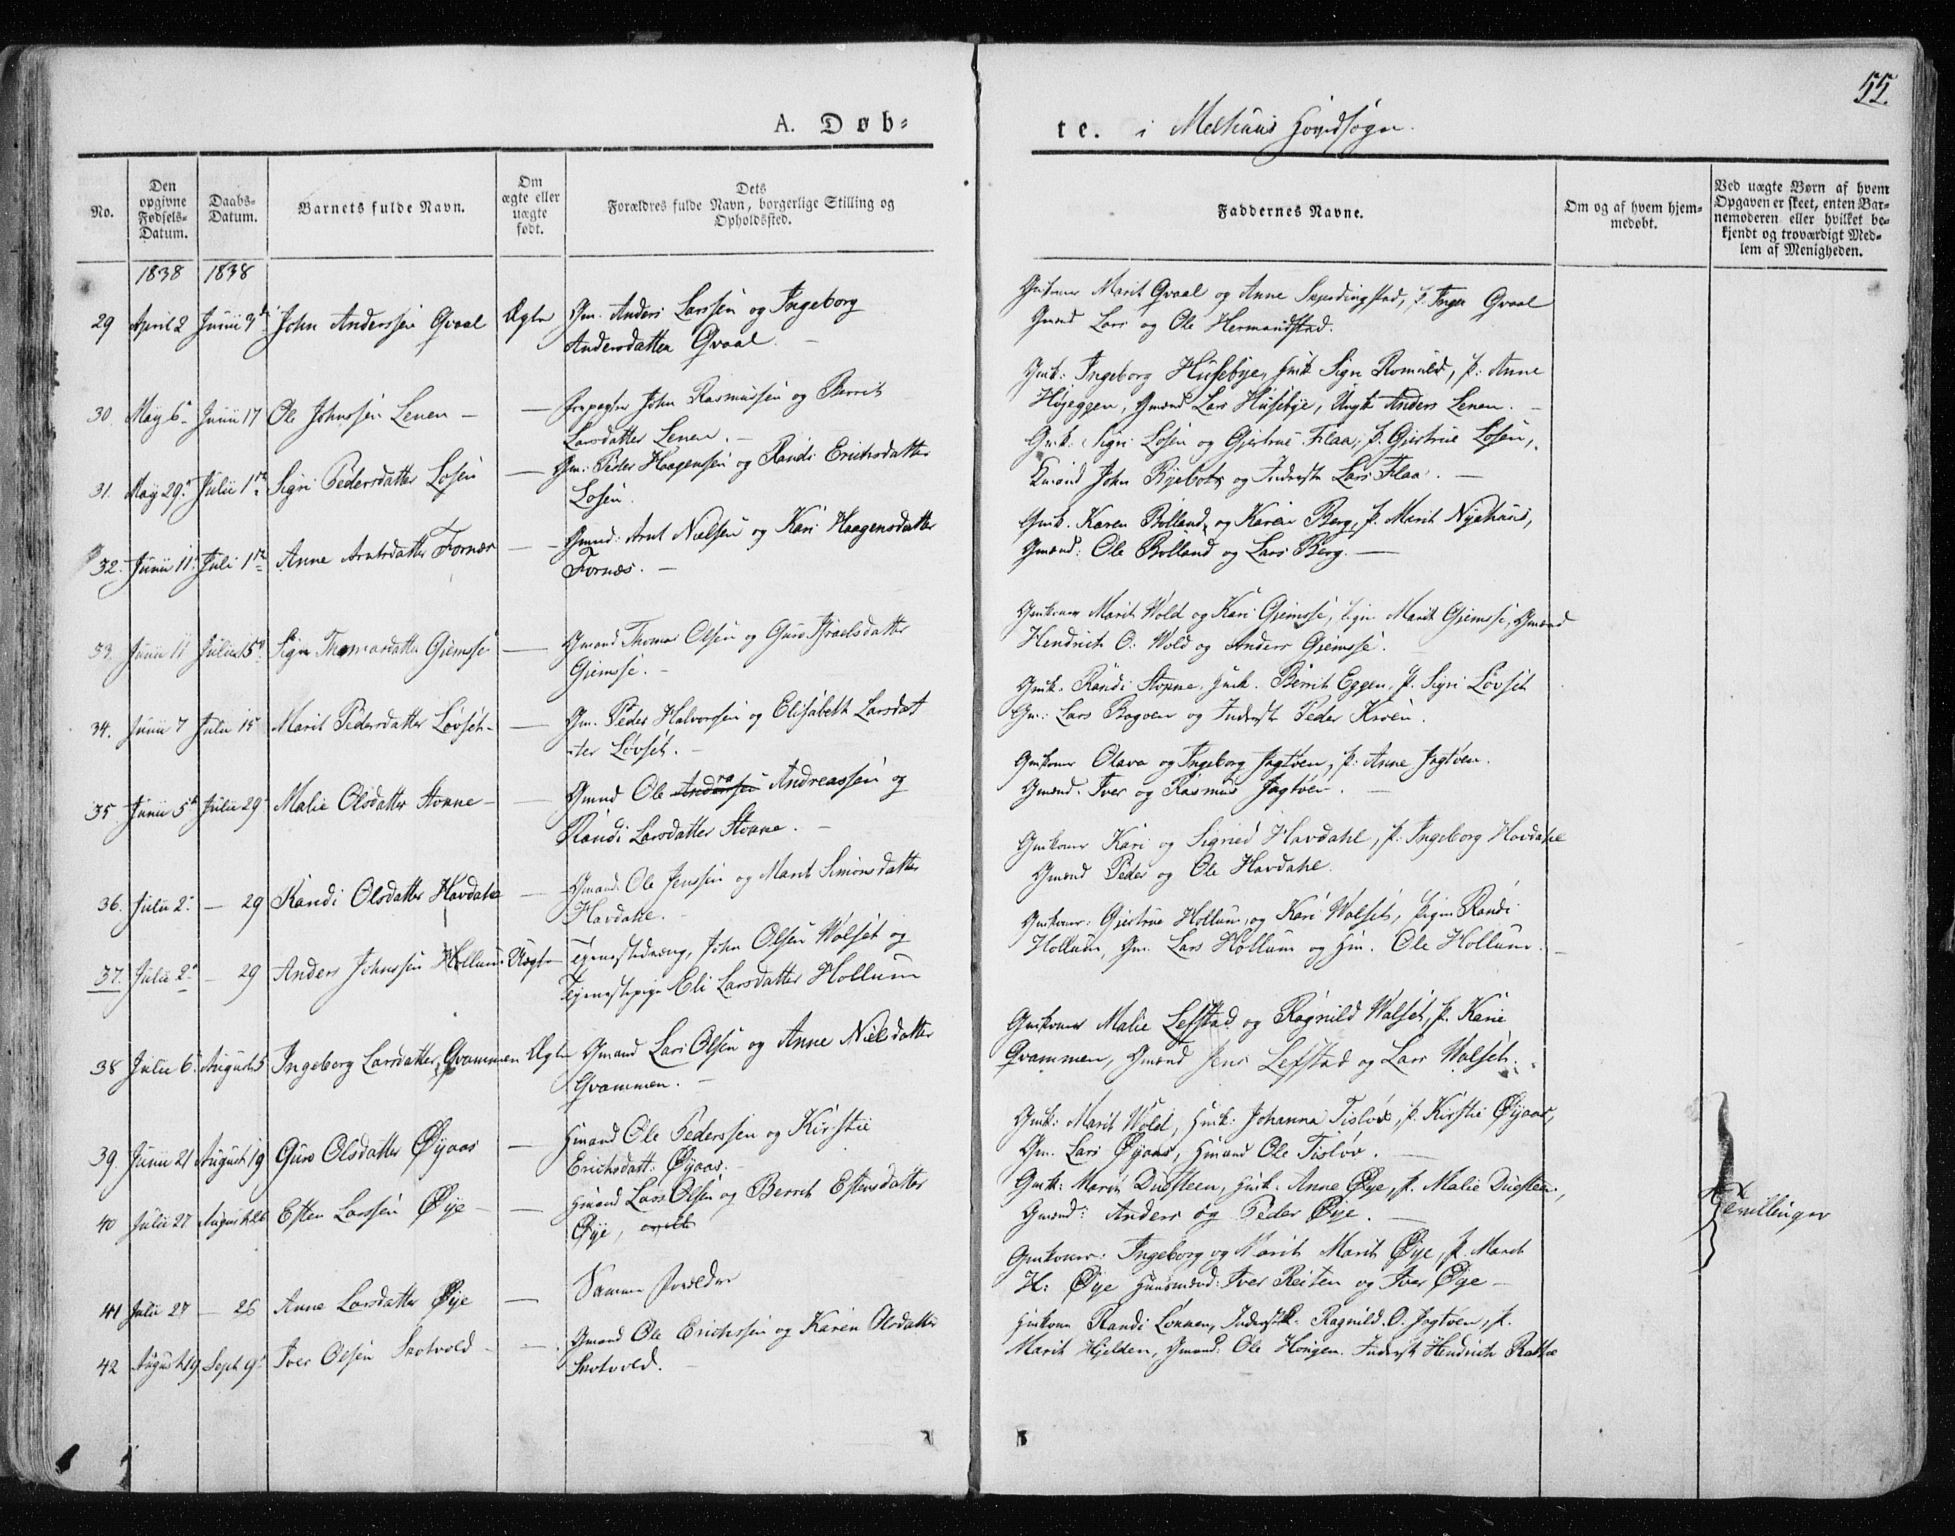 55.
A. Døb-
te. i Melhuus Hovedsogn.
No.
Den opgivne Fødsels-Datum.
Daabs-Datum.
Barnets fulde Navn.
Om ægte eller uægte født.
Dets Forældres fulde Navn, borgerlige Stilling og Opholdsted.
Faddernes Navne.
Om og af hvem hjem-medøbt.
Ved uægte Børn af hvem Opgaven er skeet, enten Bar-nemoderen eller hvilket be-kjendt og troværdigt Med-lem af Menigheden.
1838 1838
29 April 2 Junii 3d John Anderssen Qvaal Ægte Gm. Anders Larssen og Ingeborg
Andersdatter Qvaal. –
Gmkoner Marit Qvaal og Anne, p. Inger Qvaal
Gmænd Lars og Ole Hermandstad.
30. May 6 Junii 17 Ole Johnssen Lenen – — John Rasmussen og Berrit
Larsdatter Lenen. –
Gmk: Ingeborg Husebye, Hmk Sigri, p: Anne
Højeggen, Gmænd Lars Husebye, Ungk Anders Lenen. –
31. May 29. Julii 1ste Sigri Pedersdatter Losen — Gm: Peder Haagensen og Randi Erichsdatter
Losen.
Gmk. Sigri Losen og Gjertrue Flaa, p. Gjertrue Losen,
John og Inderste Lars Flaa. —
32. Junii 11. Juli 1ste Anne Arntsdatter Fornæs — Gmand: Arnt Nielsen og Kari Haagensdatter
Fornæs. –
Gmk. Karen Bolland, og Karen Berg, p. Marit Nyehuus,
Gmænd: Ole Bolland og Lars Berg. —
33. Junii 11 Julii 15d Sigri Thomasdatter Gjemsse — Gmand Thomas Olsen og Guro Israelsdatter
Gjemsse. –
Gmkoner Marit Wold og Kari Gjemsse, Pigen Marit Gjemsse, Gmænd
Hendrich O. Wold og Anders Gjemsse.
34. Junii 7 Julii 15 Marit Pedersdatter Løvset — Gm. Peder Halvorssen og Elisabeth Larsdat
-ter Løvset. –
Gmk. Randi Stonne, Hmk. Berrit Eggen, p. Sigri Løvset
Gm: Lars og Inderste Peder Kroen.
35 Junii 5te Julii 29 Malie Olsdatter Stonne — Gmand Ole Anderssen Andreassen og
Randi Larsdatter Stonne. –
Gmkoner Olava og Ingeborg Jagtøen, p: Anne Jagtøen.
Gmænd. Iver og Rasmus Jagtøen. —
36. Julii 2 — 29 Randi Olsdatter Havdahl — Gmand. Ole Jenssen og Marit Simonsdatter
Havdahl. –
Gmkoner Kari og Sigried Havdahl, p. Ingeborg Havdahl
Gmænd Peder og Ole Havdahl.
37. Julii 2 — 29 Anders Johnssen Hollum Uægte Tjenestedreng, John Olsen Wolset og
Tjenestepige Eli Larsdatter Hollum
Gmkoner: Gjertrue Hollum, og Kari Wolset, Pigen Randi
Hollum, Gm. Lars Hollum og Hm. Ole Hollum. –
38 Julii 6. August 5 Ingeborg Larsdatter Qvammen Ægte Gmand Lars Olsen og Anne Nielsdatter
Qvammen. –
Gmkoner Malie Lefstad og Ragnild Wolset, p. Karie
Qvammen, Gmænd Jens Lefstad og Lars Wolset.
39. Junii 21 August 19 Guro Olsdatter Øyaas — Hmand Ole Pederssen og Kirstie
Erichsdatt: Øyaas.
Gmk: Marit Wold, Hmk: Johanna Tisløv, p. Kirstie Øyaas,
Gm. Lars Øyaas, Hmand Ole Tisløv. –
40 Julii 27 August 26 Esten Larssen Øye – — Hmand Lars Olsen og Berrit Estensdatter
Øye,
Gmk: Marit Duesteen, Hmk. Anne Øye, p. Malie Duesteen,
Gmænd: Anders og Peder Øye. –
Tvillinger
41 Julii 27 — 26 Anne Larsdatter Øye — Samme Forældre
Gmkoner: Ingeborg og Marit Marit Øye, p. Marit
H: Øye Huusmænd: Iver Reiten og Iver Øye –
42 August 19 Sept 9 Iver Olsen Skotvold — Gmand Ole Erichssen og Karen Olsdatter
Skotvold. –
Hmkone Randi Lønnen, Ragnild O. Jagtøen, p.
Marit Hjelden, Gmænd: Ole Hongen. Inderste Hendrich